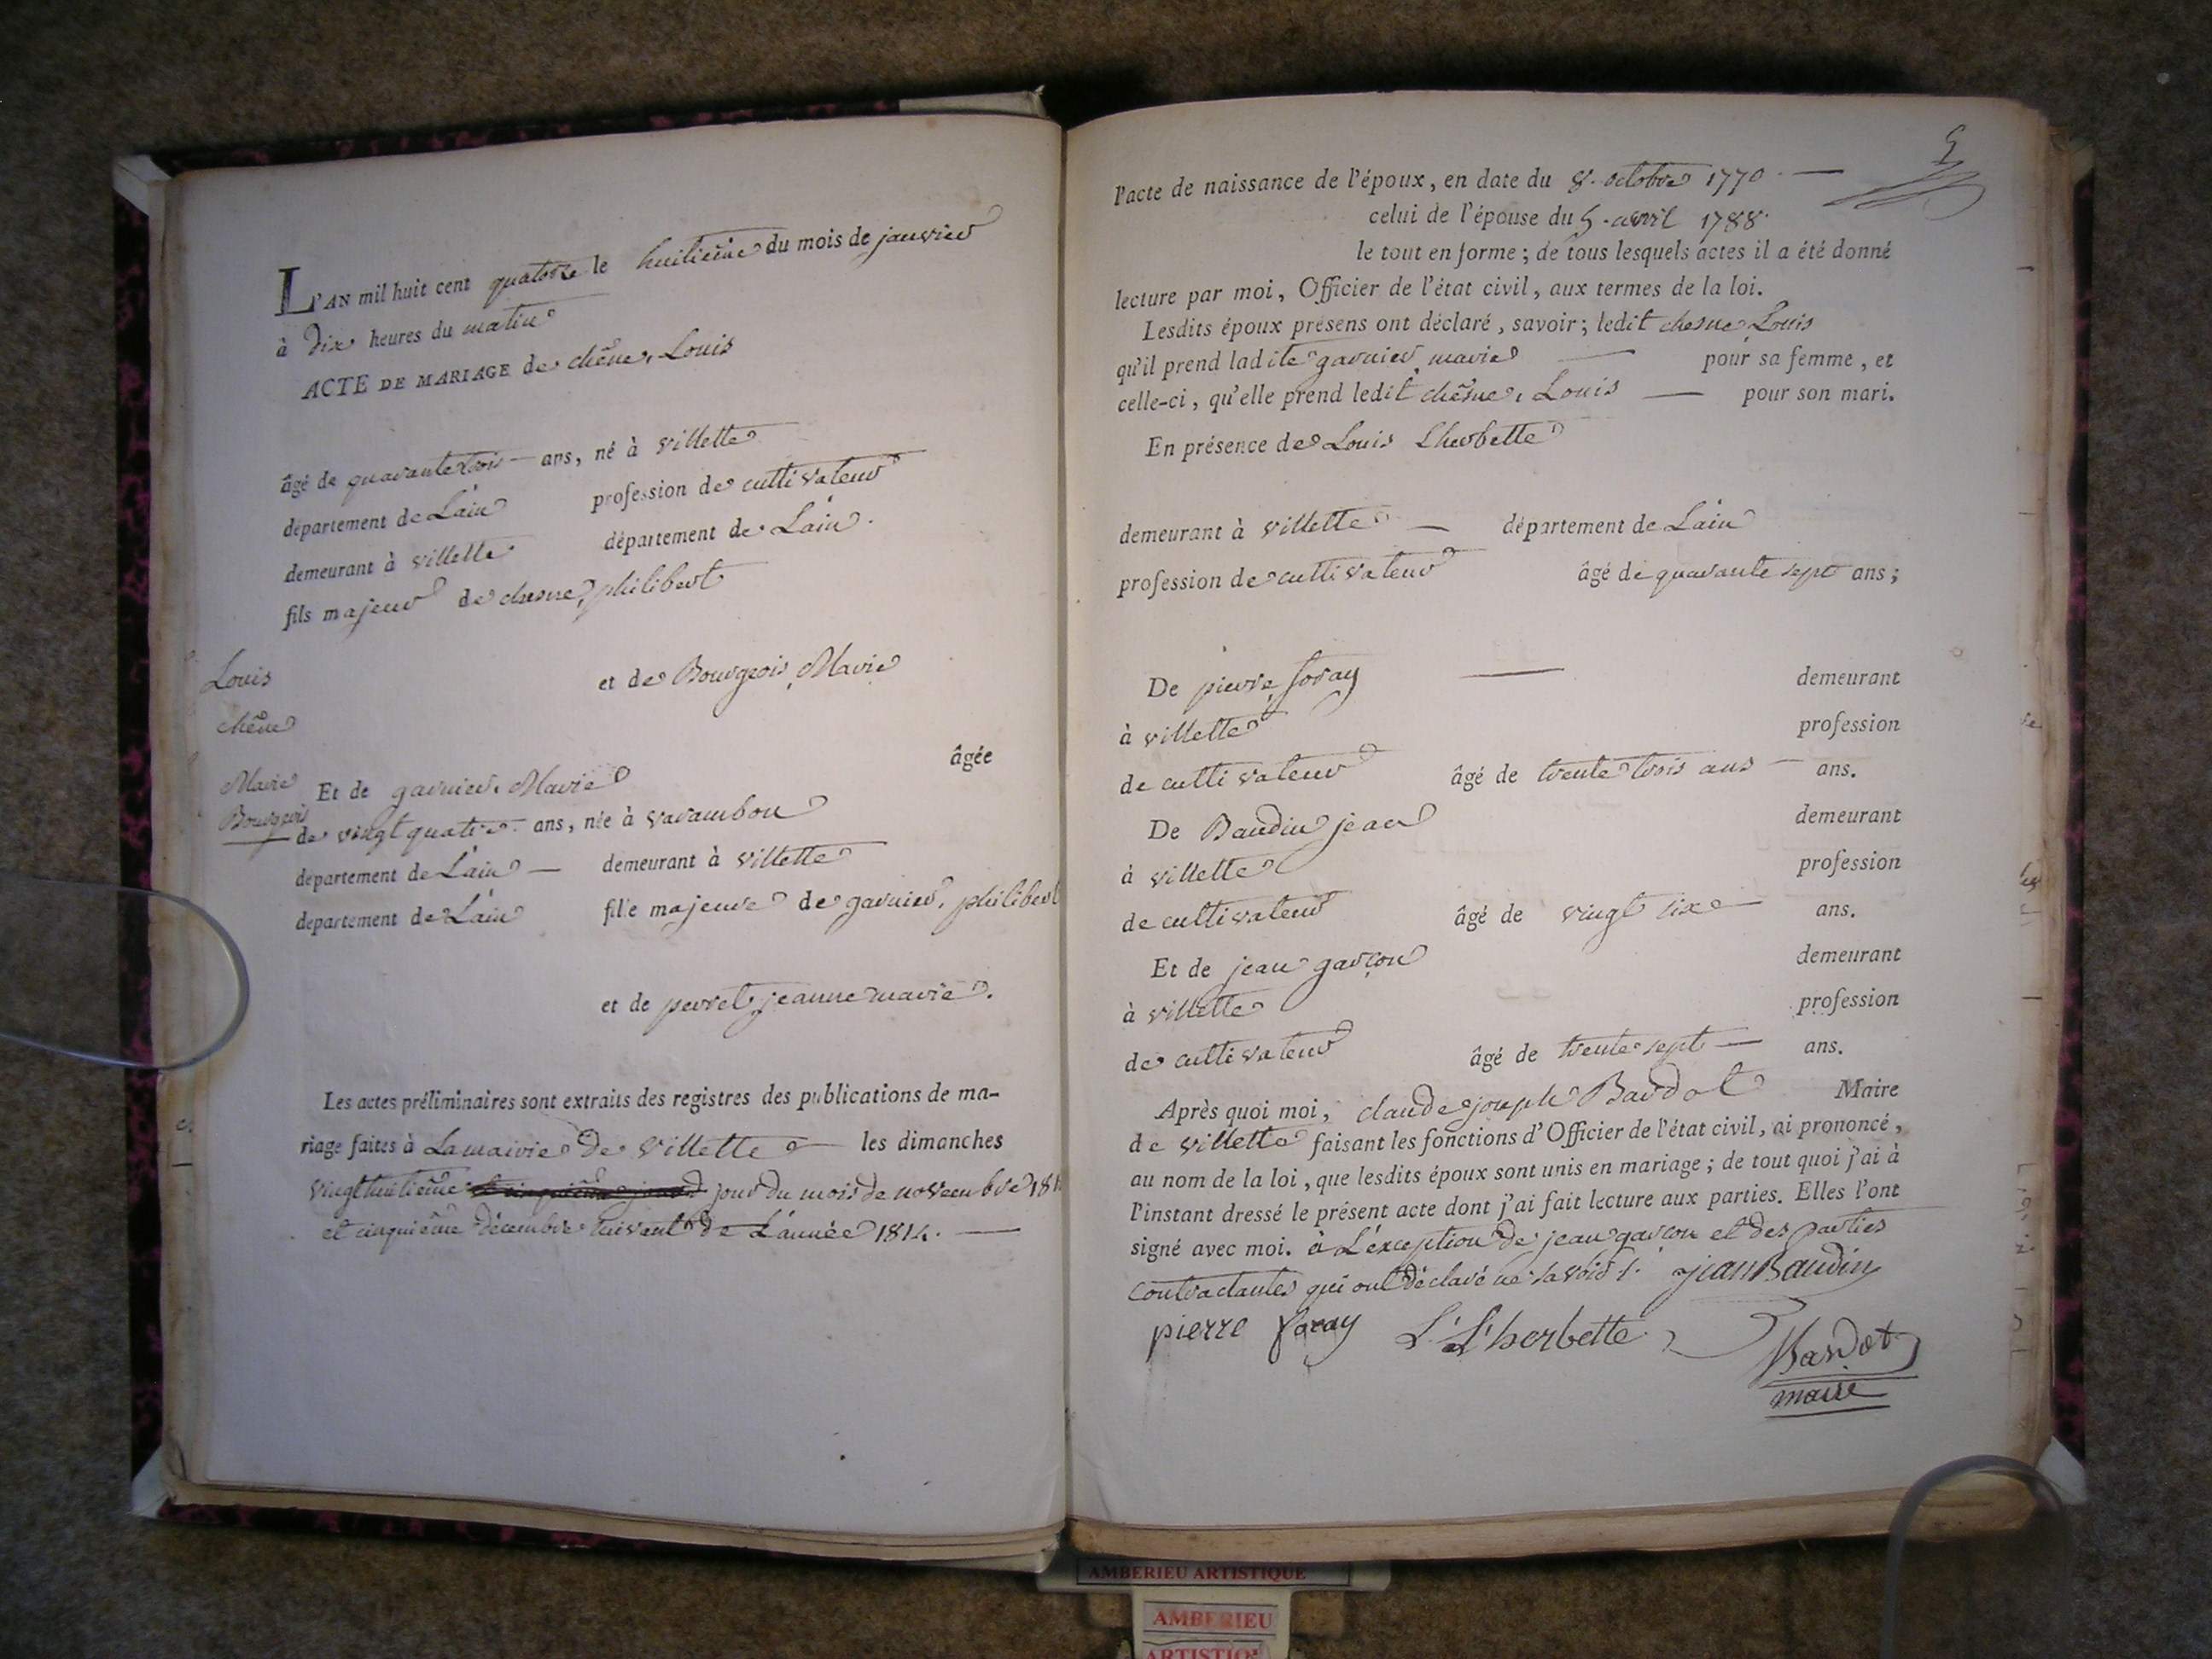 L'AN mil huit cent quatorze le huitième du mois de janvier
à dix heures du matin
ACTE DE MARIAGE de chêne, Louis
âgé de quarante trois — ans, né à villette
département de L'ain profession de cultivateur
demeurant à villette département de L'ain.
fils majeur de chesne, philibert
et de Bourgeois, Marie
Louis
chêne
Marie
Bourgeois
âgée
Et de garnier, Marie
de vingt quatre ans, née à varambon
département de L'ain — demeurant à villette
département de L'ain fille majeure de garnier, philibert
et de perret, jeanne marie.
Les actes préliminaires sont extraits des registres des publications de ma-
riage faites à La mairie de villette — les dimanches
vingt huitième jour du mois de novembre
et cinquième décembre suivent de L'année 1814. —
5
l'acte de naissance de l'époux, en date du 8. octobre 1770 —
celui de l'épouse du 5. avril 1788
le tout en forme ; de tous lesquels actes il a été donné
lecture par moi, Officier de l'état civil, aux termes de la loi.
Lesdits époux présens ont déclaré, savoir ; ledit chesne, Louis
qu'il prend ladite garnier, marie — pour sa femme, et
celle-ci, qu'elle prend ledit chêsne, Louis — pour son mari.
En présence de Louis Lherbette
demeurant à villette — département de L'ain
profession de cultivateur âgé de quarante sept ans ;
De pierre foray — demeurant
à villette profession
de cultivateur âgé de trente trois ans — ans.
De Baudin jean demeurant
à villette profession
de cultivateur âgé de vingt six — ans.
Et de jean garçon demeurant
à villette profession
de cultivateur âgé de trente sept — ans.
Après quoi moi, claude joseph Bardot Maire
de villette faisant les fonctions d'Officier de l'état civil, ai prononcé,
au nom de la loi, que lesdits époux sont unis en mariage ; de tout quoi j'ai à
l'instant dressé le présent acte dont j'ai fait lecture aux parties. Elles l'ont
signé avec moi. à L'exception de jean garçon et des parties
contractantes qui ont déclaré ne savoir jean Baudin
pierre foray L. L'herbette
Bardot
maire
AMBERIEU ARTISTIQUE
AMBERIEU
ARTISTIQUE